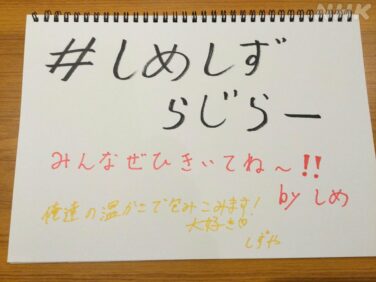 NHK
#しめしず
らじらー
みんなぜひきいてね〜!!
by しめ
俺達の温かさで包みこみます!
大好きや
しずや